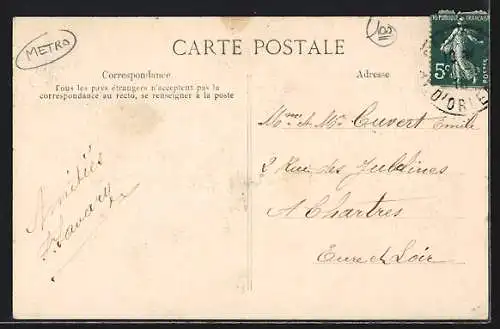 METRO
CARTE POSTALE
RÉPUBLIQUE FRANÇAISE
5c
POSTES
D'ORLÉ
Correspondance
Tous les pays étrangers n'acceptent pas la
correspondance au recto, se renseigner à la poste
Adresse
Amitiés
Mme et Mr Cuvert Emile
2 Rue des Jubelines
A Chartres
Eure et Loir